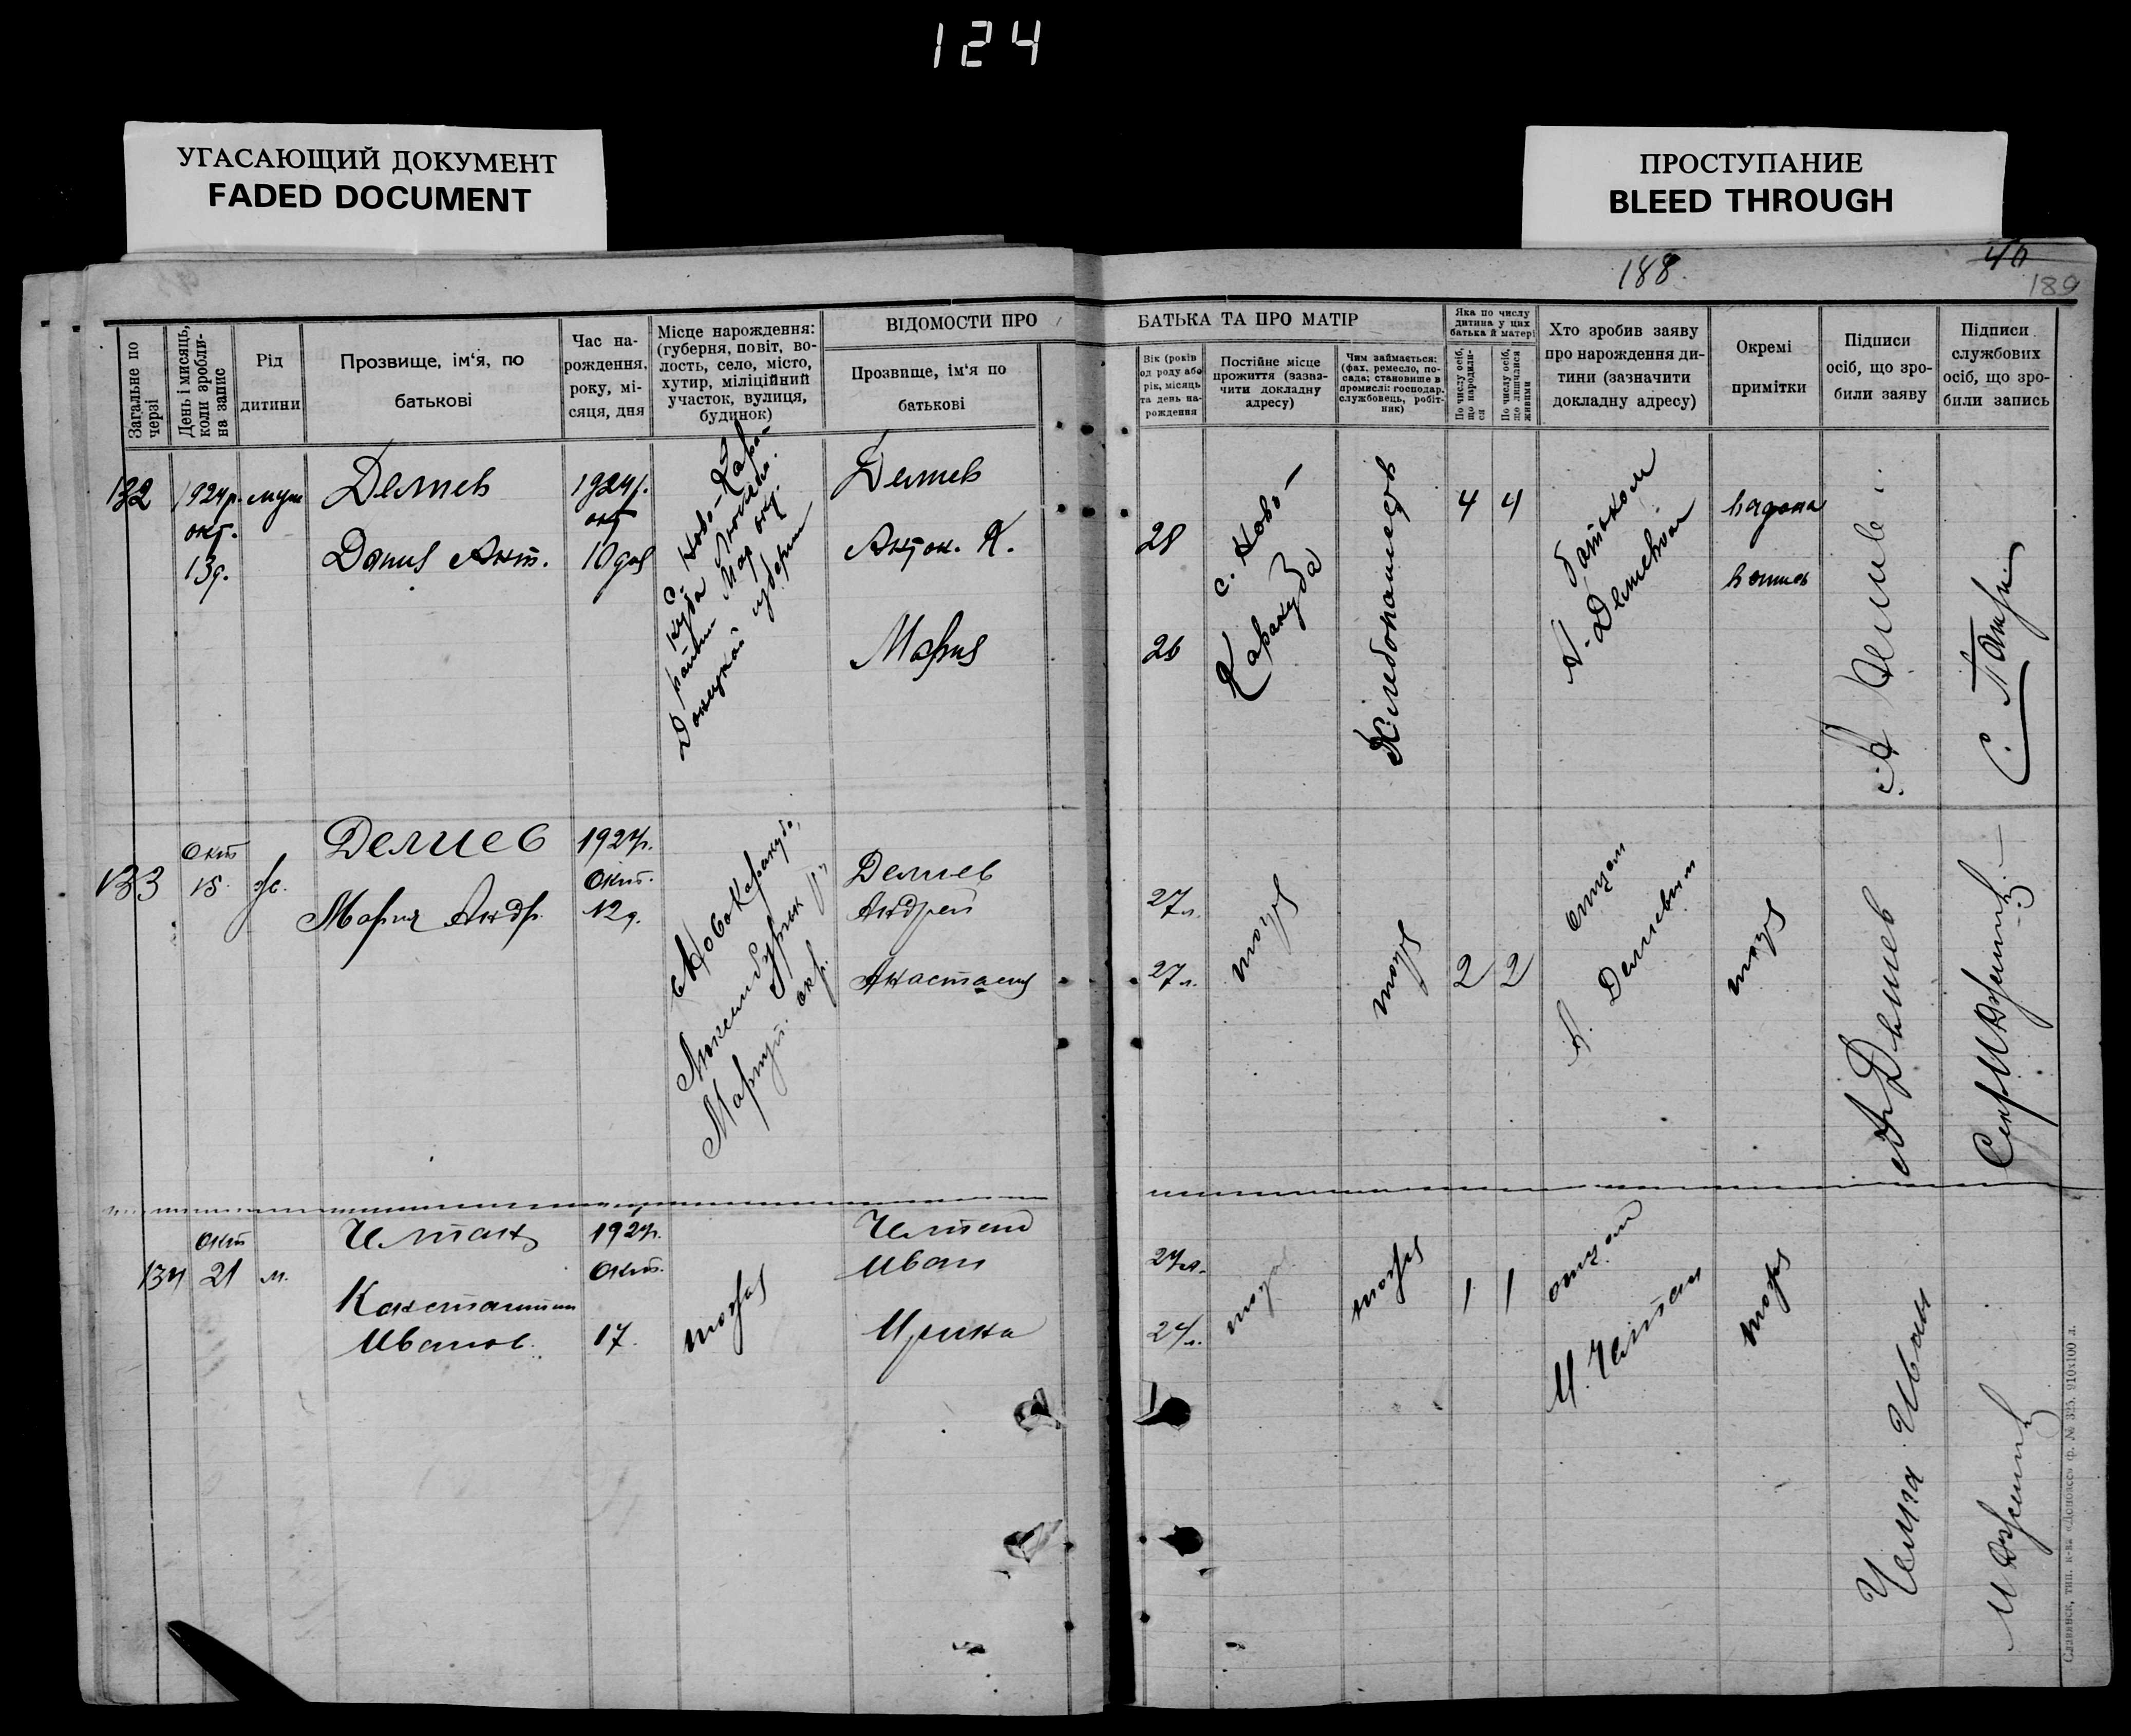 124
УГАСАЮЩИЙ ДОКУМЕНТ
FADED DOCUMENT
ПРОСТУПАНИЕ
BLEED THROUGH
188.
46
189
Загальне по черзі
День і місяць, коли зробли- на запис
Рід
дитини
Прозвище, ім'я, по
батькові
Час на-
рождення,
року, мі-
сяця, дня
Місце нарождення:
(губерня, повіт, во-
лость, село, місто,
хутир, міліційний
участок, вулиця,
будинок)
ВІДОМОСТИ ПРО
Прозвище, ім'я по
батькові
БАТЬКА ТА ПРО МАТІР
Вік (років
од роду або
рік, місяць
та день на-
рождення
Постійне місце
прожиття (зазна-
чити докладну
адресу)
Чим займається:
(фах, ремесло, по-
сада; становище в
промислі: господар,
службовець, робіт-
ник)
Яка по числу
дитина у цих
батька й матері
По числу осіб,
що народили-
ся
По числу осіб,
що лишилися
живими
Хто зробив заяву
про нарождення ди-
тини (зазначити
докладну адресу)
Окремі
примітки
Підписи
осіб, що зро-
били заяву
Підписи
службових
осіб, що зро-
били запись
132
1924р.
окт.
13д.
муж
Делиев
Данил Ант.
1924р.
окт
10 дня
с. Ново-Кара-
куба
район Мар окр.
Донецкой губернии
Делиев
Антон. К.
Мария
28
26
с. Ново-
Каракуба
Хлебопашець
4
4
батьком
А. Делиевим
133
Окт
15
ж.
Делиев
Мария Андр.
1924р.
Окт.
12д.
с. Новокаракуба,
Мариуп. окр.
Делиев
Андрей
Анастасия
27л.
27л.
тоже
тоже
2
2
отцом
А. Делиевым
тоже
А Делиев
134
Окт
21
м.
Челтан
Константин
Иванов.
1924р.
Окт.
17.
тоже
Иван
Ирина
24л.
24л.
тоже
тоже
1
1
отцом
И. Челпан
тоже
Иван
Славянск, тип.
№ 325. 910х100 л.